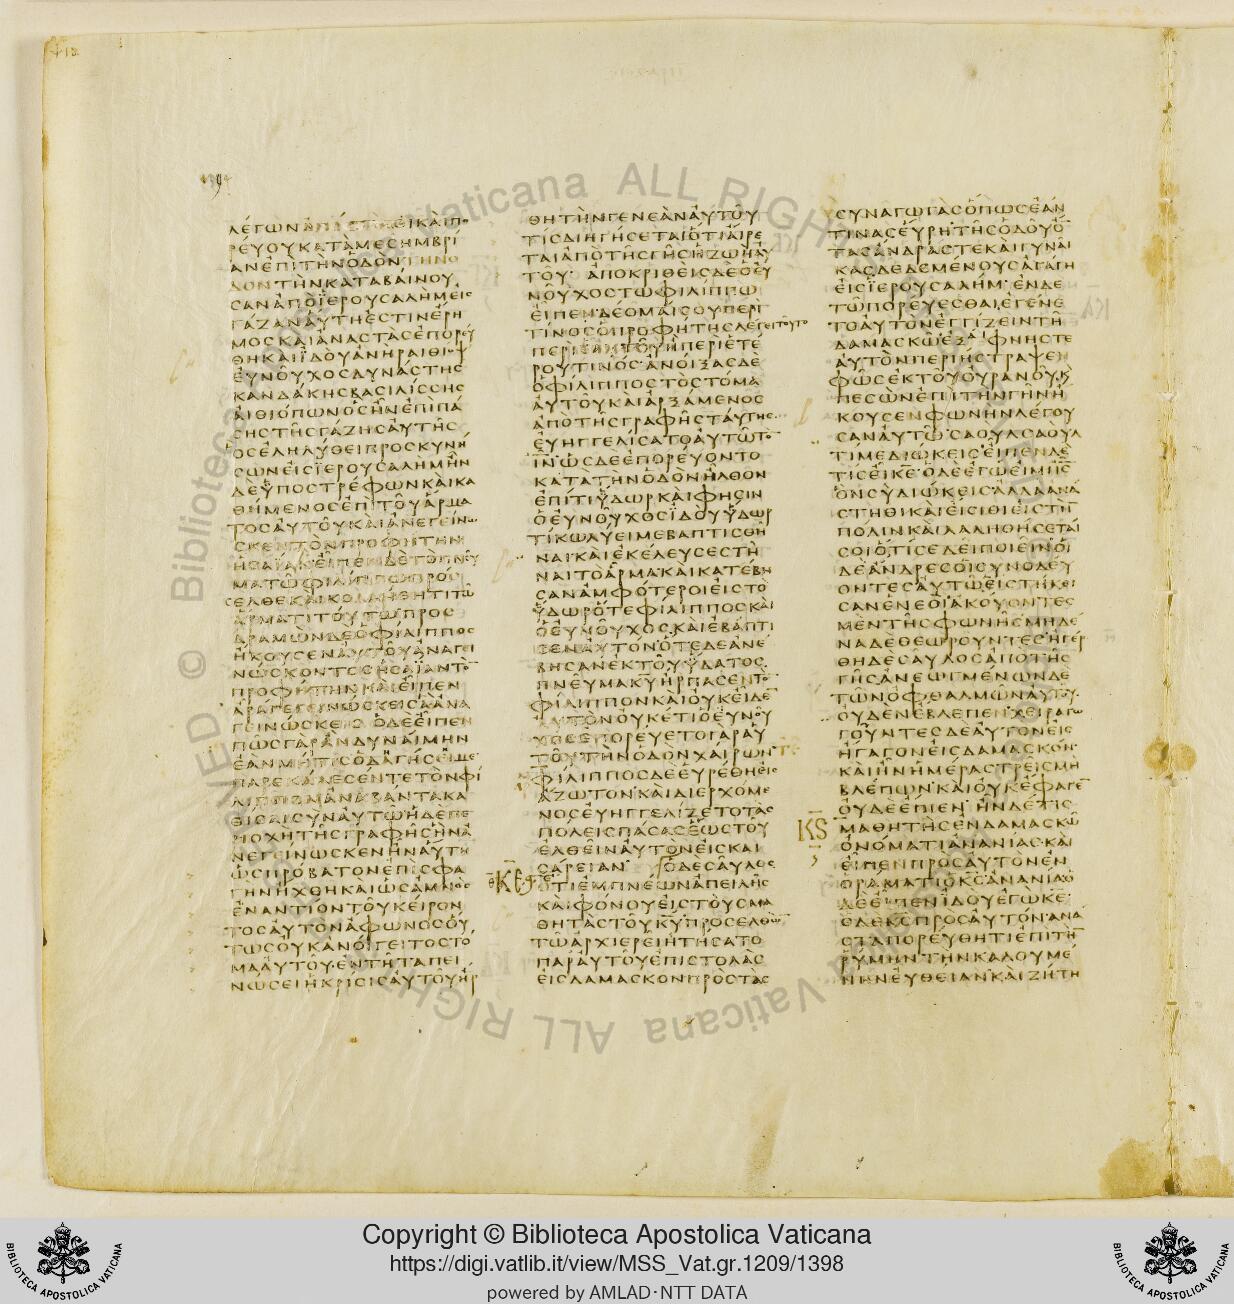 1394
ΛΕΓΩΝ ΑΝΑΣΤΗΘΙ ΚΑΙ ΠΟ
ΡΕΥΟΥ ΚΑΤΑ ΜΕΣΗΜΒΡΙ
ΑΝ ΕΠΙ ΤΗΝ ΟΔΟΝ ΤΗΝ
ΚΑΤΑΒΑΙΝΟΥ
ΣΑΝ ΑΠΟ ΙΕΡΟΥΣΑΛΗΜ ΕΙΣ
ΓΑΖΑΝ ΑΥΤΗ ΕΣΤΙΝ ΕΡΗ
ΜΟΣ ΚΑΙ ΑΝΑΣΤΑΣ ΕΠΟΡΕΥ
ΘΗ ΚΑΙ ΙΔΟΥ ΑΝΗΡ ΑΙΘΙΟΨ
ΕΥΝΟΥΧΟΣ ΔΥΝΑΣΤΗΣ
ΚΑΝΔΑΚΗΣ ΒΑΣΙΛΙΣΣΗΣ
ΑΙΘΙΟΠΩΝ ΟΣ ΗΝ ΕΠΙ ΠΑ
ΣΗΣ ΤΗΣ ΓΑΖΗΣ ΑΥΤΗΣ
ΟΣ ΕΛΗΛΥΘΕΙ ΠΡΟΣΚΥΝΗ
ΣΩΝ ΕΙΣ ΙΕΡΟΥΣΑΛΗΜ ΗΝ
ΔΕ ΥΠΟΣΤΡΕΦΩΝ ΚΑΙ ΚΑ
ΘΗΜΕΝΟΣ ΕΠΙ ΤΟΥ ΑΡΜΑ
ΤΟΣ ΑΥΤΟΥ ΚΑΙ ΑΝΕΓΕΙΝΩ
ΣΚΕΝ ΤΟΝ ΠΡΟΦΗΤΗΝ
ΗΣΑΙΑΝ ΕΙΠΕΝ ΔΕ ΤΟ ΠΝΕΥ
ΜΑ ΤΩ ΦΙΛΙΠΠΩ ΠΡΟΣ
ΕΛΘΕ ΚΑΙ ΚΟΛΛΗΘΗΤΙ ΤΩ
ΑΡΜΑΤΙ ΤΟΥΤΩ ΠΡΟΣ
ΔΡΑΜΩΝ ΔΕ Ο ΦΙΛΙΠΠΟΣ
ΗΚΟΥΣΕΝ ΑΥΤΟΥ ΑΝΑΓΕΙ
ΝΩΣΚΟΝΤΟΣ ΗΣΑΙΑΝ ΤΟΝ
ΠΡΟΦΗΤΗΝ ΚΑΙ ΕΙΠΕΝ
ΑΡΑ ΓΕ ΓΕΙΝΩΣΚΕΙΣ Α ΑΝΑ
ΓΕΙΝΩΣΚΕΙΣ Ο ΔΕ ΕΙΠΕΝ
ΠΩΣ ΓΑΡ ΑΝ ΔΥΝΑΙΜΗΝ
ΕΑΝ ΜΗ ΤΙΣ ΟΔΑΓΗΣΕΙ ΜΕ
ΠΑΡΕΚΑΛΕΣΕΝ ΤΕ ΤΟΝ ΦΙ
ΛΙΠΠΟΝ ΑΝΑΒΑΝΤΑ ΚΑ
ΘΙΣΑΙ ΣΥΝ ΑΥΤΩ Η ΔΕ ΠΕ
ΡΙΟΧΗ ΤΗΣ ΓΡΑΦΗΣ ΗΝ Α
ΝΕΓΕΙΝΩΣΚΕΝ ΗΝ ΑΥΤΗ
ΩΣ ΠΡΟΒΑΤΟΝ ΕΠΙ ΣΦΑ
ΓΗΝ ΗΧΘΗ ΚΑΙ ΩΣ ΑΜΝΟΣ
ΕΝΑΝΤΙΟΝ ΤΟΥ ΚΕΙΡΟΝ
ΤΟΣ ΑΥΤΟΝ ΑΦΩΝΟΣ ΟΥ
ΤΩΣ ΟΥΚ ΑΝΟΙΓΕΙ ΤΟ ΣΤΟ
ΜΑ ΑΥΤΟΥ ΕΝ ΤΗ ΤΑΠΕΙ
ΝΩΣΕΙ Η ΚΡΙΣΙΣ ΑΥΤΟΥ ΗΡ
ΘΗ ΤΗΝ ΓΕΝΕΑΝ ΑΥΤΟΥ
ΤΙΣ ΔΙΗΓΗΣΕΤΑΙ ΟΤΙ ΑΙΡΕ
ΤΑΙ ΑΠΟ ΤΗΣ ΓΗΣ Η ΖΩΗ ΑΥ
ΤΟΥ ΑΠΟΚΡΙΘΕΙΣ ΔΕ Ο ΕΥ
ΝΟΥΧΟΣ ΤΩ ΦΙΛΙΠΠΩ
ΕΙΠΕΝ ΔΕΟΜΑΙ ΣΟΥ ΠΕΡΙ
ΤΙΝΟΣ Ο ΠΡΟΦΗΤΗΣ ΛΕΓΕΙ ΤΟΥΤΟ
ΠΕΡΙ ΕΑΥΤΟΥ Η ΠΕΡΙ ΕΤΕ
ΡΟΥ ΤΙΝΟΣ ΑΝΟΙΞΑΣ ΔΕ
Ο ΦΙΛΙΠΠΟΣ ΤΟ ΣΤΟΜΑ
ΑΥΤΟΥ ΚΑΙ ΑΡΞΑΜΕΝΟΣ
ΑΠΟ ΤΗΣ ΓΡΑΦΗΣ ΤΑΥΤΗΣ
ΕΥΗΓΓΕΛΙΣΑΤΟ ΑΥΤΩ ΤΟΝ
ΙΝ ΩΣ ΔΕ ΕΠΟΡΕΥΟΝΤΟ
ΚΑΤΑ ΤΗΝ ΟΔΟΝ ΗΛΘΟΝ
ΕΠΙ ΤΙ ΥΔΩΡ ΚΑΙ ΦΗΣΙΝ
Ο ΕΥΝΟΥΧΟΣ ΙΔΟΥ ΥΔΩΡ
ΤΙ ΚΩΛΥΕΙ ΜΕ ΒΑΠΤΙΣΘΗ
ΝΑΙ ΚΑΙ ΕΚΕΛΕΥΣΕ ΣΤΗ
ΝΑΙ ΤΟ ΑΡΜΑ ΚΑΙ ΚΑΤΕΒΗ
ΣΑΝ ΑΜΦΟΤΕΡΟΙ ΕΙΣ ΤΟ
ΥΔΩΡ Ο ΤΕ ΦΙΛΙΠΠΟΣ ΚΑΙ
Ο ΕΥΝΟΥΧΟΣ ΚΑΙ ΕΒΑΠΤΙ
ΣΕΝ ΑΥΤΟΝ ΟΤΕ ΔΕ ΑΝΕ
ΒΗΣΑΝ ΕΚ ΤΟΥ ΥΔΑΤΟΣ
ΠΝΕΥΜΑ ΚΥ ΗΡΠΑΣΕΝ ΤΟΝ
ΦΙΛΙΠΠΟΝ ΚΑΙ ΟΥΚ ΕΙΔΕΝ
ΑΥΤΟΝ ΟΥΚΕΤΙ Ο ΕΥΝΟΥ
ΧΟΣ ΕΠΟΡΕΥΕΤΟ ΓΑΡ ΑΥ
ΤΟΥ ΤΗΝ ΟΔΟΝ ΧΑΙΡΩΝ
ΦΙΛΙΠΠΟΣ ΔΕ ΕΥΡΕΘΗ ΕΙΣ
ΑΖΩΤΟΝ ΚΑΙ ΔΙΕΡΧΟΜΕ
ΝΟΣ ΕΥΗΓΓΕΛΙΖΕΤΟ ΤΑΣ
ΠΟΛΕΙΣ ΠΑΣΑΣ ΕΩΣ ΤΟΥ
ΕΛΘΕΙΝ ΑΥΤΟΝ ΕΙΣ ΚΑΙ
ΣΑΡΕΙΑΝ Ο ΔΕ ΣΑΥΛΟΣ
ΕΤΙ ΕΜΠΝΕΩΝ ΑΠΕΙΛΗΣ
ΚΑΙ ΦΟΝΟΥ ΕΙΣ ΤΟΥΣ ΜΑ
ΘΗΤΑΣ ΤΟΥ ΚΥ ΠΡΟΣΕΛΘΩΝ
ΤΩ ΑΡΧΙΕΡΕΙ ΗΤΗΣΑΤΟ
ΠΑΡ ΑΥΤΟΥ ΕΠΙΣΤΟΛΑΣ
ΕΙΣ ΔΑΜΑΣΚΟΝ ΠΡΟΣ ΤΑΣ
ΣΥΝΑΓΩΓΑΣ ΟΠΩΣ ΕΑΝ
ΤΙΝΑΣ ΕΥΡΗ ΤΗΣ ΟΔΟΥ ΟΝ
ΤΑΣ ΑΝΔΡΑΣ ΤΕ ΚΑΙ ΓΥΝΑΙ
ΚΑΣ ΔΕΔΕΜΕΝΟΥΣ ΑΓΑΓΗ
ΕΙΣ ΙΕΡΟΥΣΑΛΗΜ ΕΝ ΔΕ
ΤΩ ΠΟΡΕΥΕΣΘΑΙ ΕΓΕΝΕ
ΤΟ ΑΥΤΟΝ ΕΓΓΙΖΕΙΝ ΤΗ
ΔΑΜΑΣΚΩ ΕΞΑΙΦΝΗΣ ΤΕ
ΑΥΤΟΝ ΠΕΡΙΗΣΤΡΑΨΕΝ
ΦΩΣ ΕΚ ΤΟΥ ΟΥΡΑΝΟΥ Κ
ΠΕΣΩΝ ΕΠΙ ΤΗΝ ΓΗΝ Η
ΚΟΥΣΕΝ ΦΩΝΗΝ ΛΕΓΟΥ
ΣΑΝ ΑΥΤΩ ΣΑΟΥΛ ΣΑΟΥΛ
ΤΙ ΜΕ ΔΙΩΚΕΙΣ ΕΙΠΕΝ ΔΕ
ΤΙΣ ΕΙ ΚΕ Ο ΔΕ ΕΓΩ ΕΙΜΙ ΙΣ
ΟΝ ΣΥ ΔΙΩΚΕΙΣ ΑΛΛΑ ΑΝΑ
ΣΤΗΘΙ ΚΑΙ ΕΙΣΙΘΙ ΕΙΣ ΤΗΝ
ΠΟΛΙΝ ΚΑΙ ΛΑΛΗΘΗΣΕΤΑΙ
ΣΟΙ Ο ΤΙ ΣΕ ΔΕΙ ΠΟΙΕΙΝ ΟΙ
ΔΕ ΑΝΔΡΕΣ ΟΙ ΣΥΝΟΔΕΥ
ΟΝΤΕΣ ΑΥΤΩ ΕΙΣΤΗΚΕΙ
ΣΑΝ ΕΝΕΟΙ ΑΚΟΥΟΝΤΕΣ
ΜΕΝ ΤΗΣ ΦΩΝΗΣ ΜΗΔΕ
ΝΑ ΔΕ ΘΕΩΡΟΥΝΤΕΣ ΗΓΕΡ
ΘΗ ΔΕ ΣΑΥΛΟΣ ΑΠΟ ΤΗΣ
ΓΗΣ ΑΝΕΩΓΜΕΝΩΝ ΔΕ
ΤΩΝ ΟΦΘΑΛΜΩΝ ΑΥΤΟΥ
ΟΥΔΕΝ ΕΒΛΕΠΕΝ ΧΕΙΡΑΓΩ
ΓΟΥΝΤΕΣ ΔΕ ΑΥΤΟΝ ΕΙΣ
ΗΓΑΓΟΝ ΕΙΣ ΔΑΜΑΣΚΟΝ
ΚΑΙ ΗΝ ΗΜΕΡΑΣ ΤΡΕΙΣ ΜΗ
ΒΛΕΠΩΝ ΚΑΙ ΟΥΚ ΕΦΑΓΕΝ
ΟΥΔΕ ΕΠΙΕΝ ΗΝ ΔΕ ΤΙΣ
ΚϚ
ΜΑΘΗΤΗΣ ΕΝ ΔΑΜΑΣΚΩ
ΟΝΟΜΑΤΙ ΑΝΑΝΙΑΣ ΚΑΙ
ΕΙΠΕΝ ΠΡΟΣ ΑΥΤΟΝ ΕΝ
ΟΡΑΜΑΤΙ Ο ΚΣ ΑΝΑΝΙΑ Ο
ΔΕ ΕΙΠΕΝ ΙΔΟΥ ΕΓΩ ΚΕ
Ο ΔΕ ΚΣ ΠΡΟΣ ΑΥΤΟΝ ΑΝΑ
ΣΤΑ ΠΟΡΕΥΘΗΤΙ ΕΠΙ ΤΗΝ
ΡΥΜΗΝ ΤΗΝ ΚΑΛΟΥΜΕ
ΝΗΝ ΕΥΘΕΙΑΝ ΚΑΙ ΖΗΤΗ
© Biblioteca Apostolica Vaticana ALL RIGHTS RESERVED
Copyright © Biblioteca Apostolica Vaticana
https://digi.vatlib.it/view/MSS_Vat.gr.1209/1398
powered by AMLAD·NTT DATA
BIBLIOTECA APOSTOLICA VATICANA
BIBLIOTECA APOSTOLICA VATICANA